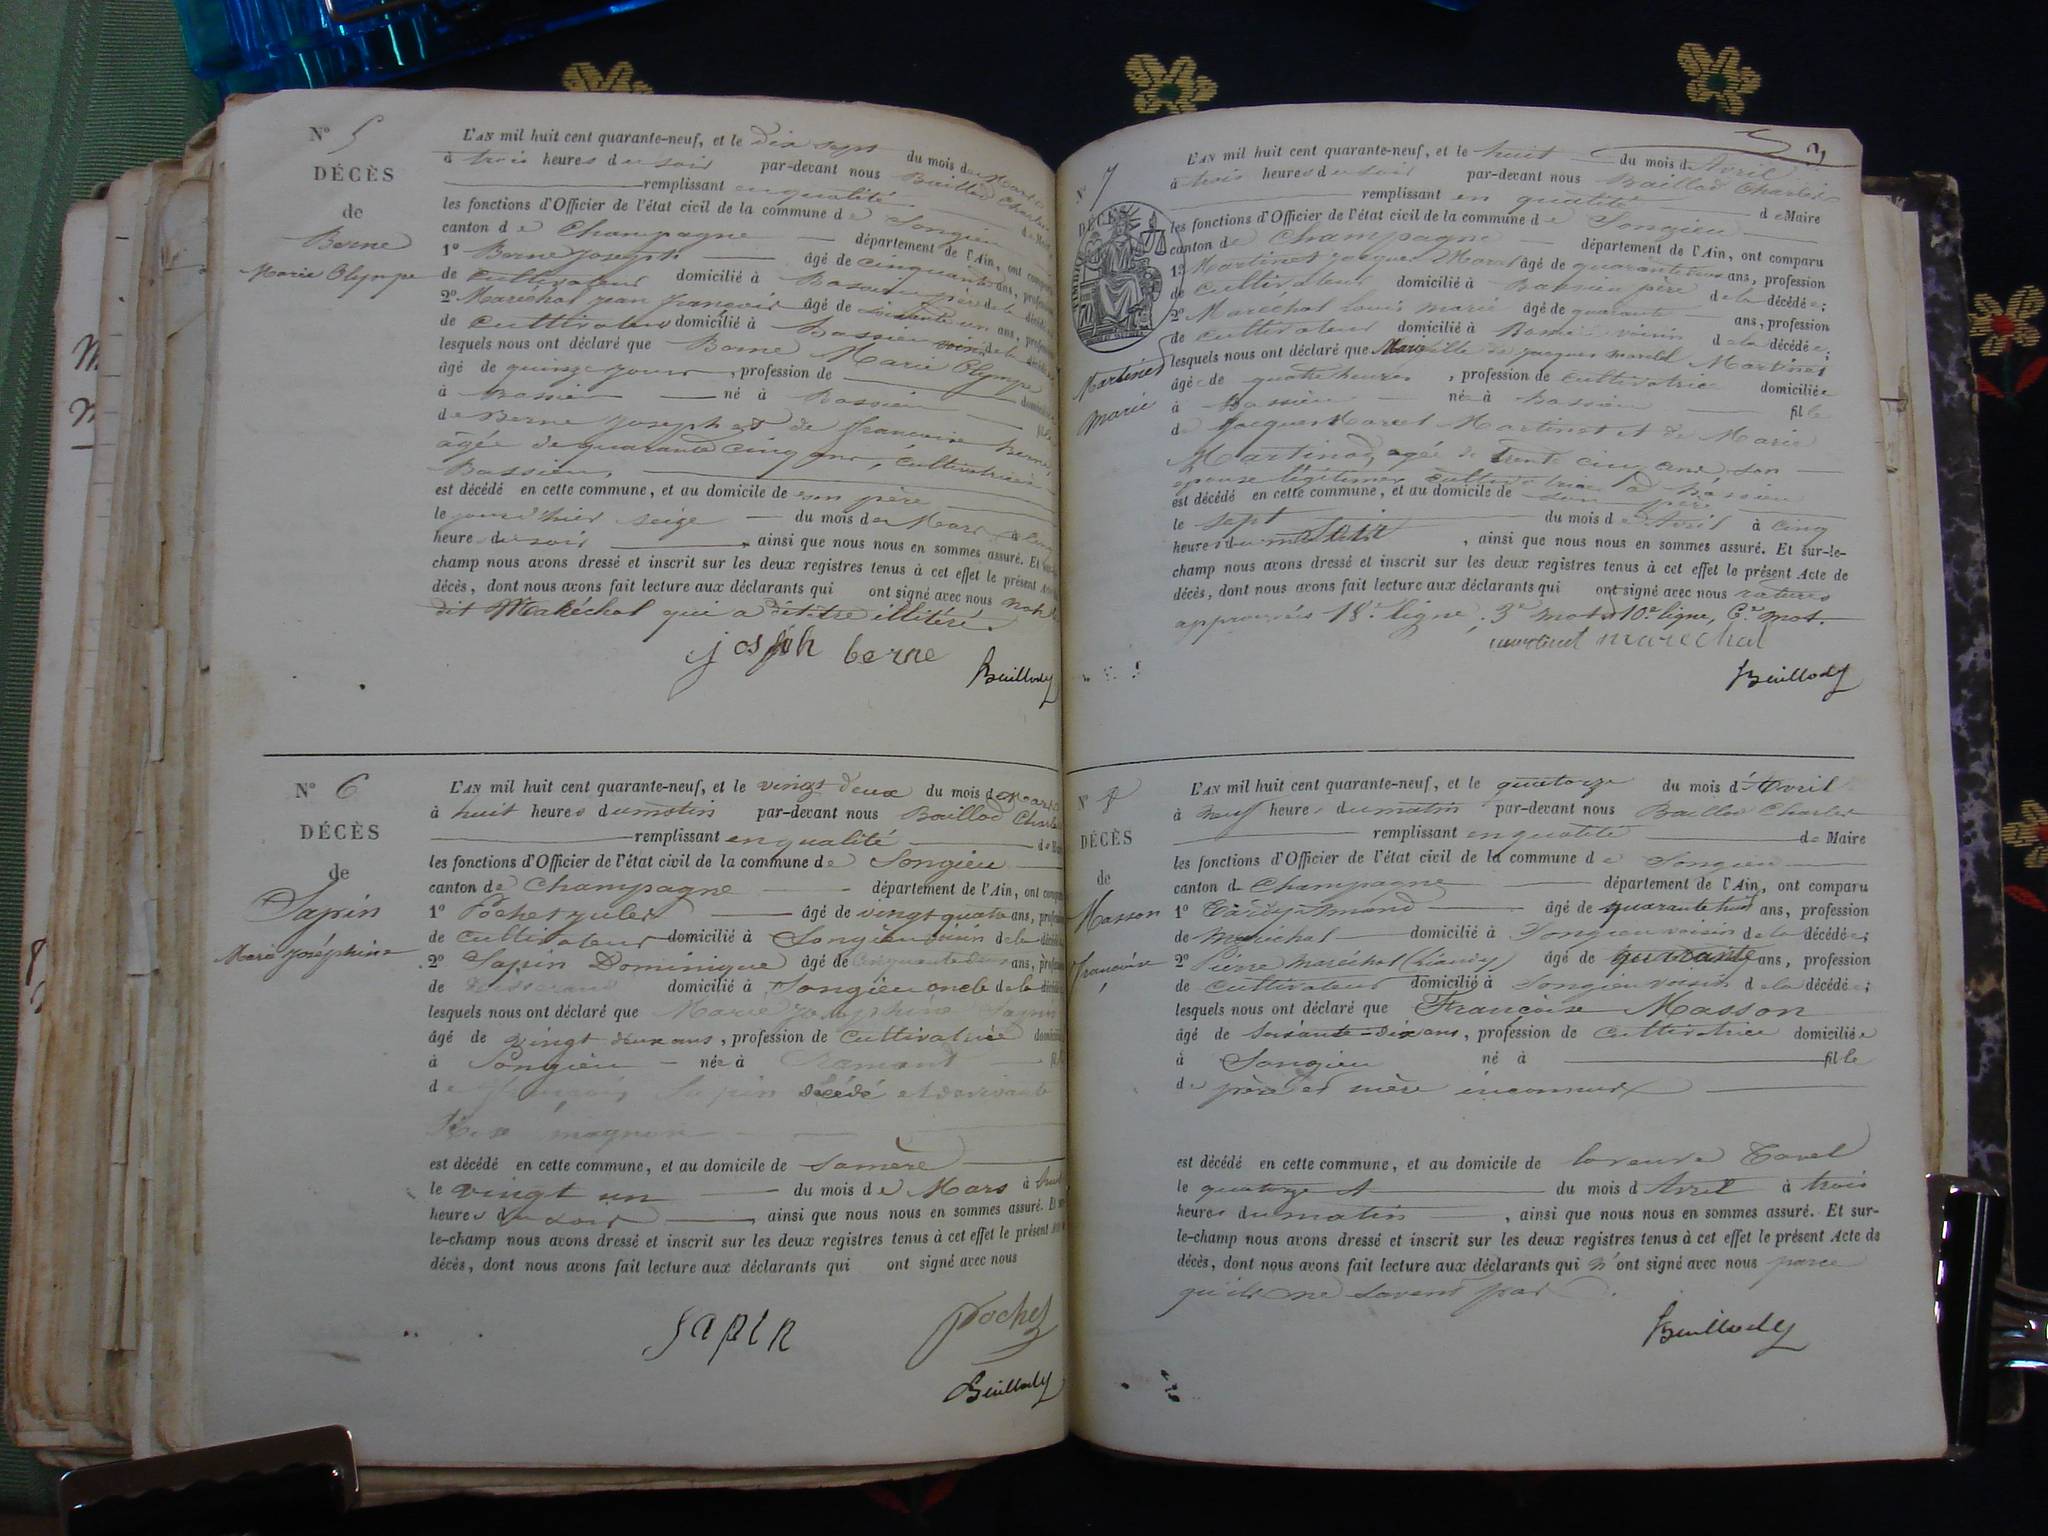 N° 5
DÉCÈS
de
Berne
Marie Olympe
L'AN mil huit cent quarante-neuf, et le dix sept du mois de Mars
à trois heures du soir par-devant nous Baillod Charles
remplissant en qualité
les fonctions d'Officier de l'état civil de la commune de Songieu
canton de Champagne département de l'Ain, ont comparu
1° Berne Joseph âgé de cinquante ans, profession
de cultivateur domicilié à Bassieu père de la décédée
2° Maréchal jean françois âgé de soixante un ans, profession
de cultivateur domicilié à Bassieu voisin de la décédée
lesquels nous ont déclaré que Berne Marie Olympe
âgé de quinze jours, profession de
à Bassieu né à Bassieu
de Berne Joseph et de françoise Berne,
âgée de quarante cinq ans, cultivatrice
Bassieu,
est décédé en cette commune, et au domicile de son père
le jour d'hier seize du mois de Mars à cinq
heure du soir, ainsi que nous nous en sommes assuré. Et sur-le-
champ nous avons dressé et inscrit sur les deux registres tenus à cet effet le présent Acte
décès, dont nous avons fait lecture aux déclarants qui ont signé avec nous non le
dit Maréchal qui a dit être illitéré.
joseph berne
Baillod
N° 6
DÉCÈS
de
Sapin
Marie Joséphine
L'AN mil huit cent quarante-neuf, et le vingt deux du mois de Mars
à huit heures du matin par-devant nous Baillod Charles
remplissant en qualité de Maire
les fonctions d'Officier de l'état civil de la commune de Songieu
canton de Champagne département de l'Ain, ont comparu
1° Pochet Jules âgé de vingt quatre ans, profession
de cultivateur domicilié à Songieu voisin de la décédée
2° Sapin Dominique âgé de cinquante deux ans, profession
de Tisserand domicilié à Songieu oncle de la décédée
lesquels nous ont déclaré que Marie Joséphine Sapin
âgé de vingt deux ans, profession de cultivatrice domiciliée
à Songieu née à
de françois Sapin décédé et de vivante
magnin
est décédé en cette commune, et au domicile de sa mère
le vingt un du mois de Mars à huit
heures du soir, ainsi que nous nous en sommes assuré. Et sur-
le-champ nous avons dressé et inscrit sur les deux registres tenus à cet effet le présent Acte
décès, dont nous avons fait lecture aux déclarants qui ont signé avec nous
sapin
Pochet
Baillod
3
N° 7
DÉCÈS
Martinet
marie
L'AN mil huit cent quarante-neuf, et le huit du mois d'Avril
à trois heures du soir par-devant nous Baillod Charles
remplissant en qualité de Maire
les fonctions d'Officier de l'état civil de la commune de Songieu
canton de Champagne département de l'Ain, ont comparu
1° Martinet Jacques Marcel âgé de quarante ans, profession
de cultivateur domicilié à Bassieu père de la décédée;
2° Maréchal Louis marie âgé de quarante ans, profession
de cultivateur domicilié à Bassieu voisin de la décédée;
lesquels nous ont déclaré que Marie fille de jacques marcel Martinet
âgée de quatre heures, profession de cultivatrice domiciliée
à Bassieu née à Bassieu fille
de Jacques Marcel Martinet et de Marie
Martinod, agée de trente cinq ans son
épouse légitime, cultivatrice à Bassieu
est décédé en cette commune, et au domicile de son père
le sept du mois d'Avril à cinq
heures du soir, ainsi que nous nous en sommes assuré. Et sur-le-
champ nous avons dressé et inscrit sur les deux registres tenus à cet effet le présent Acte de
décès, dont nous avons fait lecture aux déclarants qui ont signé avec nous ratures
approuvés 18e ligne, 3e mot et 10e ligne, 6e mot.
martinet marechal
Baillod
N° 8
DÉCÈS
de
Masson
françoise
L'AN mil huit cent quarante-neuf, et le quatorze du mois d'Avril
à neuf heures du matin par-devant nous Baillod Charles
remplissant en qualité de Maire
les fonctions d'Officier de l'état civil de la commune de Songieu
canton de Champagne département de l'Ain, ont comparu
1° Amand âgé de quarante huit ans, profession
de maréchal domicilié à Songieu voisin de la décédée;
2° Pierre maréchal âgé de quarante ans, profession
de cultivateur domicilié à Songieu voisin de la décédée;
lesquels nous ont déclaré que Françoise Masson
âgé de soixante-dix ans, profession de cultivatrice domiciliée
à Songieu né à fille
de père et mère inconnus
est décédé en cette commune, et au domicile de la veuve Tavel
le quatorze du mois d'Avril à trois
heures du matin, ainsi que nous nous en sommes assuré. Et sur-
le-champ nous avons dressé et inscrit sur les deux registres tenus à cet effet le présent Acte de
décès, dont nous avons fait lecture aux déclarants qui n'ont signé avec nous parce
qu'ils ne savent pas.
Baillod